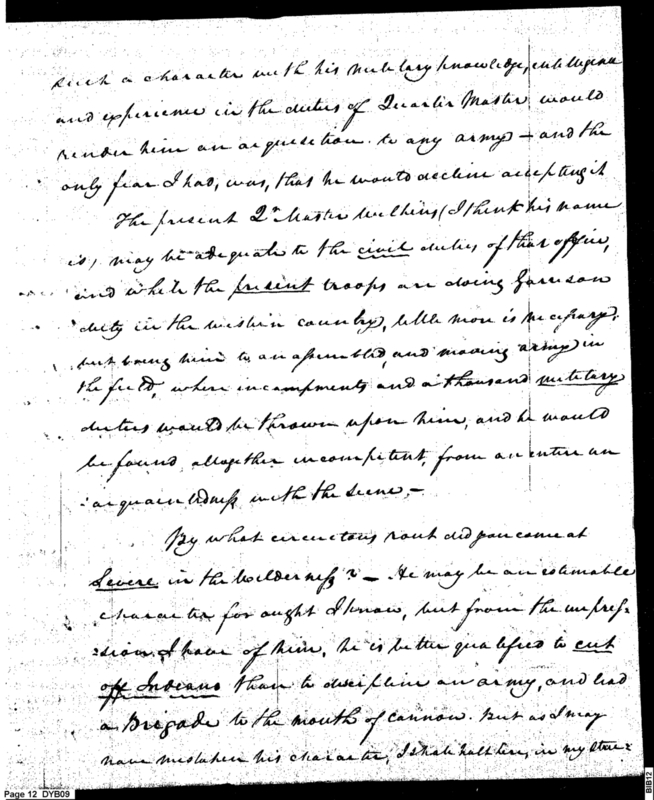 such a character with his military knowledge, intelligence
and experience in the duties of Quarter Master would
render him an acquisition to any army – and the
only fear I had, was, that he would decline accepting it
The present Qr Master Wilkins (I think his name
is) may be adequate to the civil duties of that office,
and while the present troops are doing Garrison
duty in the western country, little more is necessary;
but bring him to an assembled, and moving army in
the field, where incampments and a thousand military
duties would be thrown upon him, and he would
be found altogether incompetent, from an entire un
:acquaintedness with the scene. –
By what circuitous rout did you come at
Severe in the Wilderness? – He may be an estimable
character for ought I know, but from the impres-
:sion I have of him, he is better qualified to cut
off Indians than to discipline an army, and lead
a Brigade to the mouth of cannon. But as I may
have mistaken his character, I shall halt here, in my stric:
Page 12 DYB09
BIB12